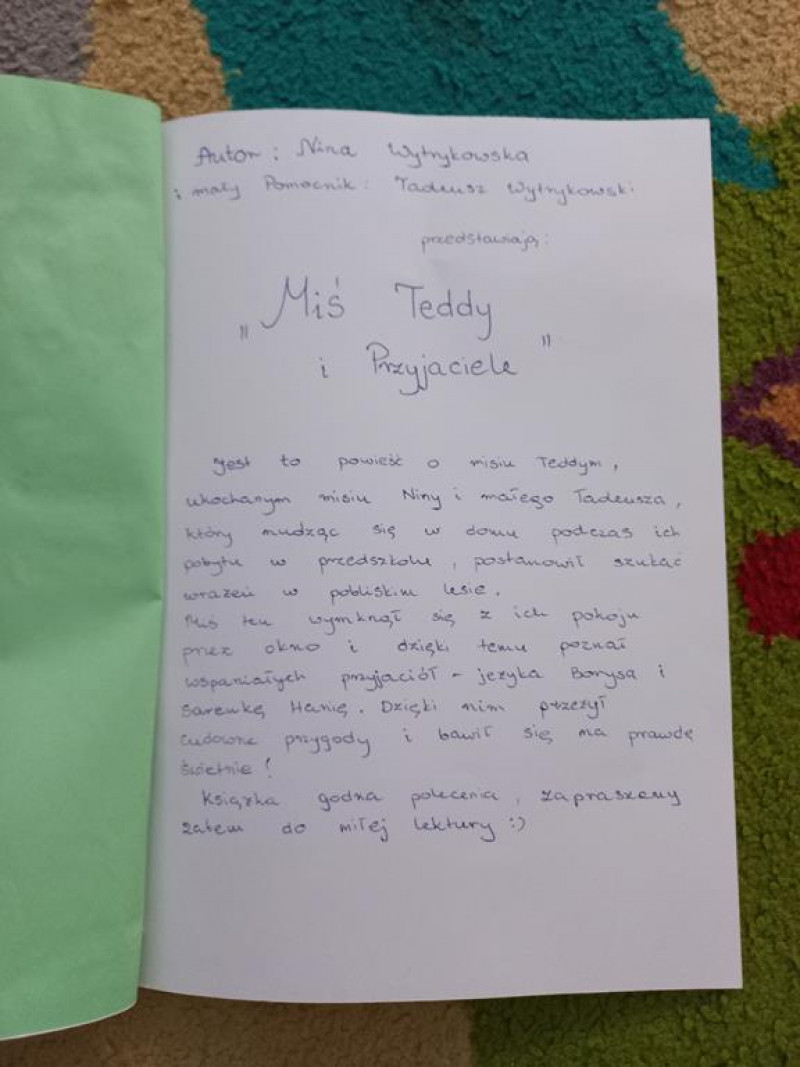 Autor : Nina Wytrykowska
i mały Pomocnik : Tadeusz Wytrykowski
przedstawiają :
„Miś Teddy
i Przyjaciele"
Jest to powieść o misiu Teddym,
ukochanym misiu Niny i małego Tadeusza,
który nudząc się w domu podczas ich
pobytu w przedszkolu, postanowił szukać
wrażeń w pobliskim lesie.
Miś ten wymknął się z ich pokoju
przez okno i dzięki temu poznał
wspaniałych przyjaciół - jeżyka Borysa i
sarenkę Hanię. Dzięki nim przeżył
cudowne przygody i bawił się na prawdę
świetnie!
Książka godna polecenia, zapraszamy
zatem do miłej lektury :)